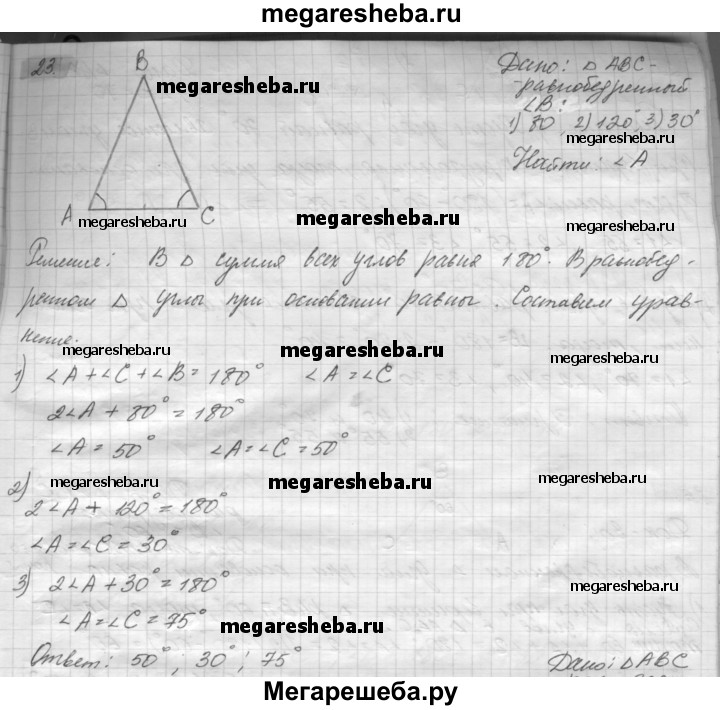 megaresheba.ru
23.
B
Дано: △ ABC -
равнобедренный
megaresheba.ru
∠B:
1) 80°, 2) 120°, 3) 30°
megaresheba.ru
Найти: ∠A
A
C
megaresheba.ru
megaresheba.ru
megaresheba.ru
Решение: В △ сумма всех углов равна 180°. В равнобед-
ренном △ углы при основании равны. Составим урав-
нение.
megaresheba.ru
megaresheba.ru
megaresheba.ru
1) ∠A + ∠C + ∠B = 180° ∠A = ∠C
2∠A + 80° = 180°
∠A = 50° ∠A = ∠C = 50°
megaresheba.ru
megaresheba.ru
megaresheba.ru
2)
2∠A + 120° = 180°
∠A = ∠C = 30°
3) 2∠A + 30° = 180°
megaresheba.ru
∠A = ∠C = 75°
megaresheba.ru
Ответ: 50°; 30°; 75°
Дано: △ ABC
Мегарешеба.ру